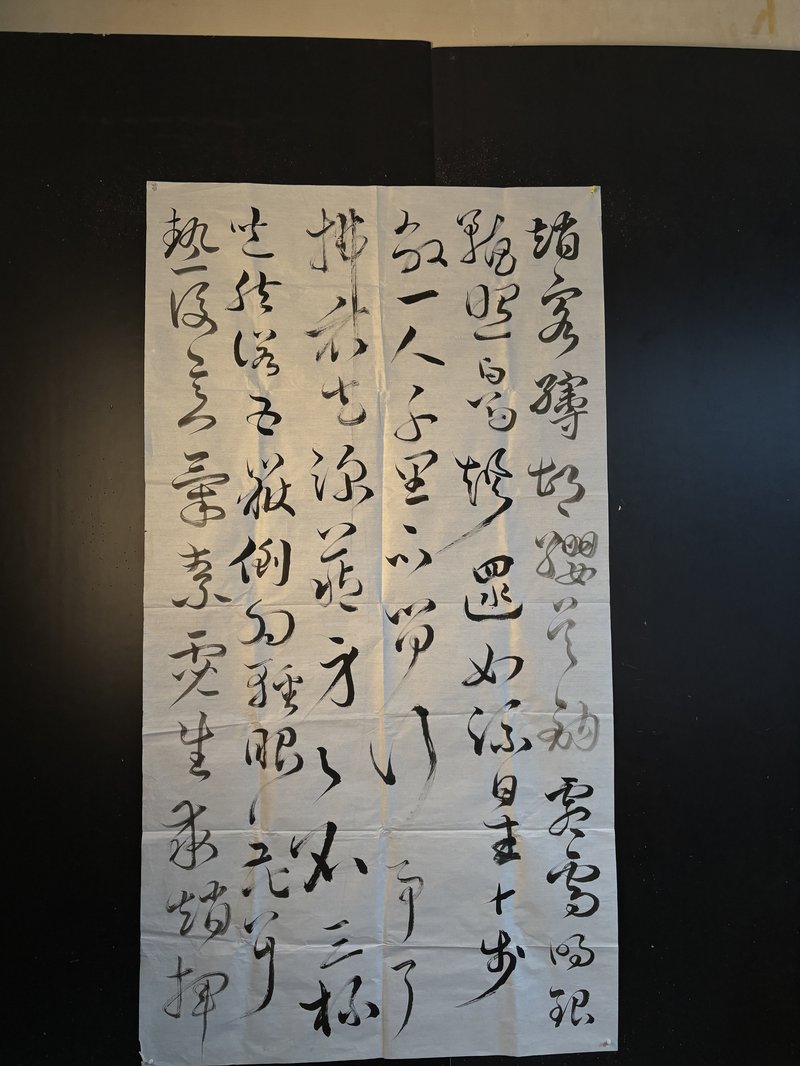 趙客縵胡纓吳鉤霜雪明銀
鞍照白馬颯遝如流星十步
殺一人千里不留行事了
拂衣去深藏身與名三杯
吐然諾五嶽倒為輕眼花耳
熱後意氣素霓生救趙揮